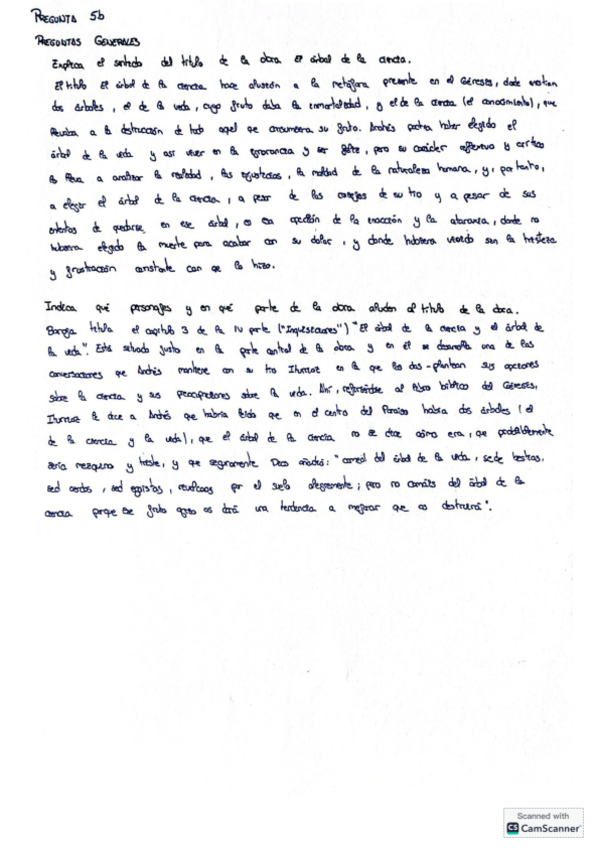 PREGUNTA 5b
PREGUNTAS GENERALES
Explica el sentido del título de la obra El árbol de la ciencia.
El título El árbol de la ciencia hace alusión a la metáfora presente en el Génesis, donde existían
dos árboles, el de la vida, cuyo fruto daba la inmortalidad, y el de la ciencia (el conocimiento), que
llevaba a la destrucción de todo aquel que consumiera su fruto. Andrés podría haber elegido el
árbol de la vida y así vivir en la ignorancia y ser feliz, pero su carácter reflexivo y crítico
lo lleva a analizar la realidad, las injusticias, la maldad de la naturaleza humana, y, por tanto,
a elegir el árbol de la ciencia, a pesar de los consejos de su tío y a pesar de sus
intentos de quedarse en ese árbol, de la inacción y la ataraxia, donde no
hubiera elegido la muerte para acabar con su dolor, y donde hubiera vivido sin la tristeza
y frustración constante con que lo hizo.
Indica qué personajes y en qué parte de la obra aluden al título de la obra.
Baroja titula el capítulo 3 de la IV parte ("Inquisiciones") "El árbol de la ciencia y el árbol de
la vida". Está situado justo en la parte central de la obra y en él se desarrolla una de las
conversaciones que Andrés mantiene con su tío Iturrioz en la que los dos plantean sus opiniones
sobre la ciencia y sus percepciones sobre la vida. Ahí, refiriéndose al libro bíblico del Génesis,
Iturrioz le dice a Andrés que habría leído que en el centro del Paraíso había dos árboles (el
de la ciencia y la vida), que el árbol de la ciencia no se dice cómo era, que probablemente
sería mezquino y triste, y que seguramente Dios añadió: "comed del árbol de la vida, sed bestias,
sed cerdos, sed egoístas, revolcaos por el suelo alegremente; pero no comáis del árbol de la
ciencia porque ese fruto agrio os dará una tendencia a mejorar que os destruirá".
Scanned with
CS CamScanner